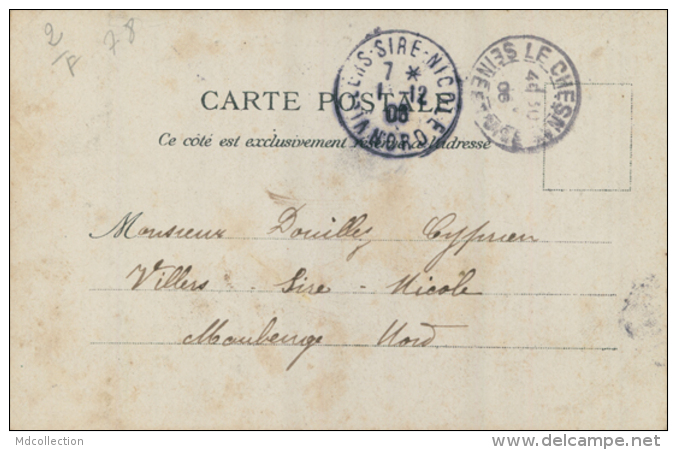 2
F 78
VILLERS-SIRE-NICOLE
7 *
1 12
06
NORD
LE CHESNAY
SEINE
06
CARTE POSTALE
Ce côté est exclusivement réservé à l'adresse
Monsieur Douillez Cyprien
Villers - Sire - Nicole
Maubeuge Nord
Mdcollection
www.delcampe.net